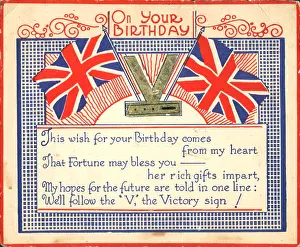 On Your
BIRTHDAY
V
This wish for your Birthday comes
from my heart
That Fortune may bless you —
her rich gifts impart,
My hopes for the future are told in one line:
We'll follow the "V," the Victory sign !